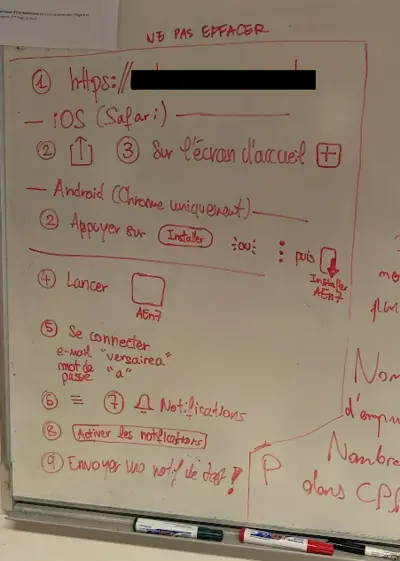 NE PAS EFFACER
① https://
— iOS (Safari) —
② ③ Sur l'écran d'accueil +
— Android (Chrome uniquement) —
② Appuyer sur Installer ou ⋮ puis
Installer
AEn7
④ Lancer
AEn7
⑤ Se connecter
e-mail "versairea"
mot de passe "a"
⑥ ≡ ⑦ Notifications
⑧ Activer les notifications
⑨ Envoyer une notif de test !
Nom
d'empru
P Nombre
dans CP